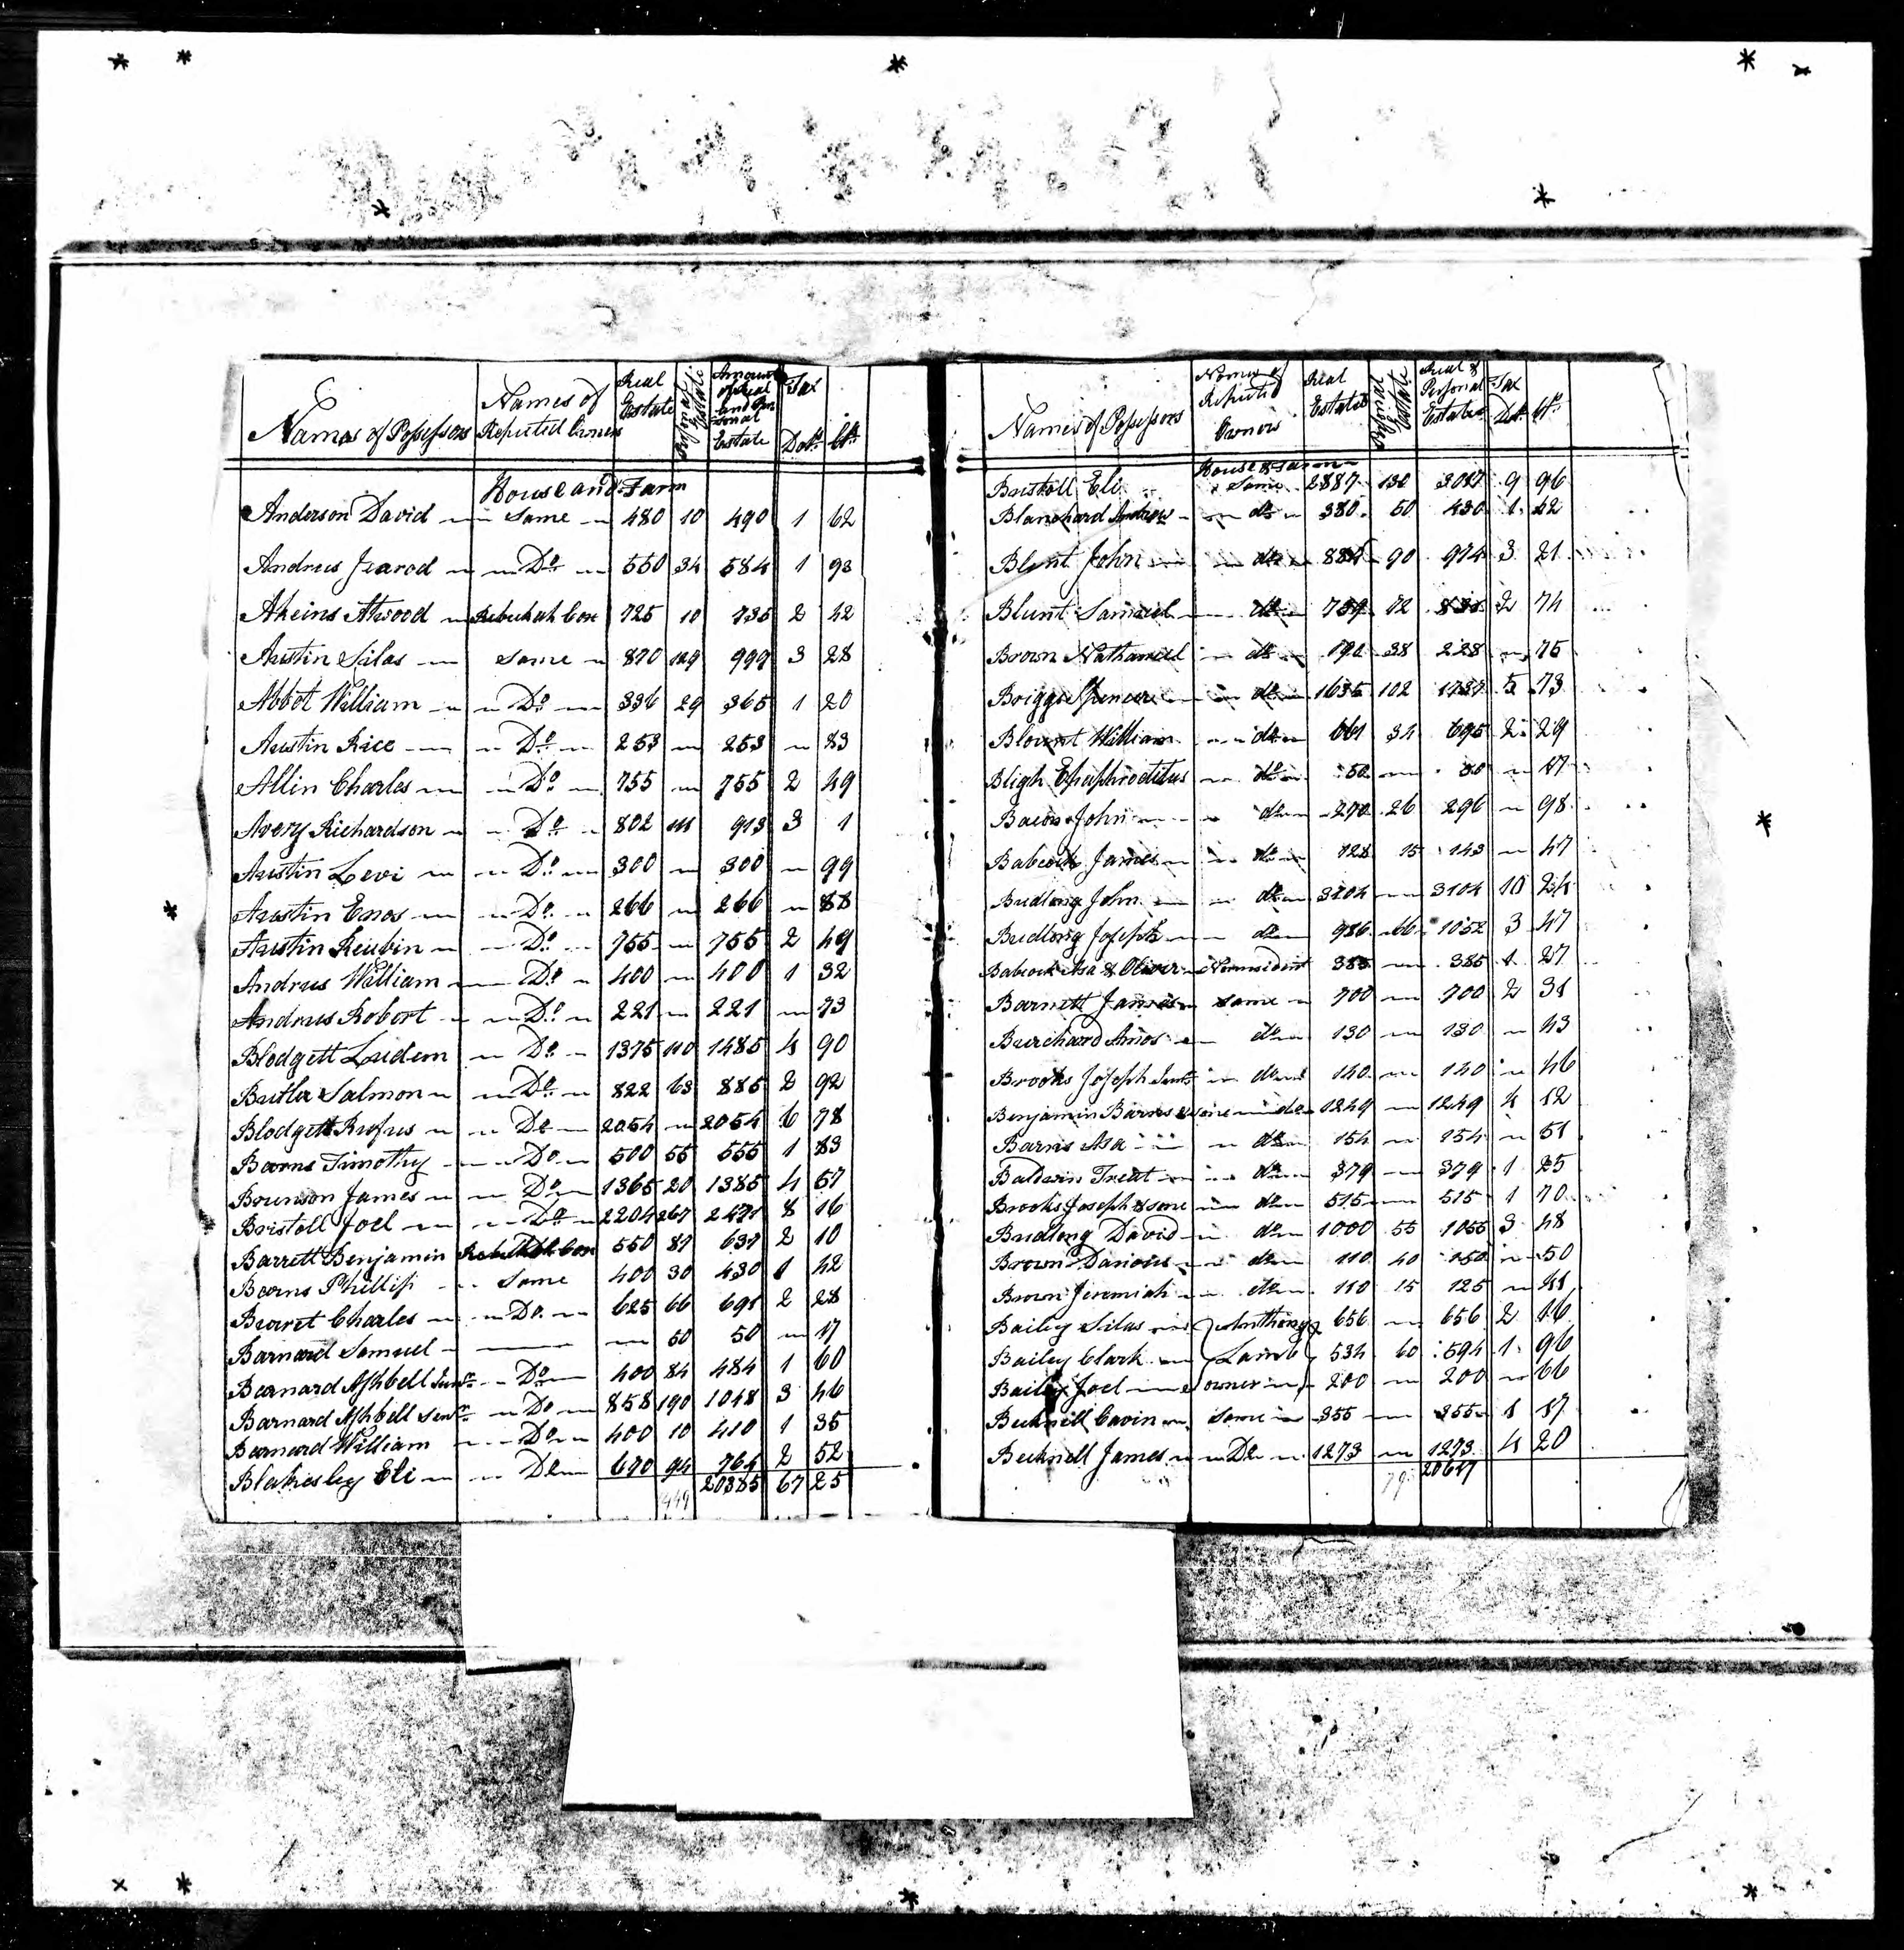 Names of Possessors Names of Reputed Owners Real Estate Personal Estate Amount of Real and Personal Estate Tax Dols Cts
House and Farm
Anderson David Same 480 10 490 1 62
Andrus Jearod Do 550 34 584 1 93
Akeins Atwood Rebeckah Cone 725 10 735 2 42
Austin Silas Same 870 129 999 3 28
Abbot William Do 336 29 365 1 20
Austin Rice Do 253 253 83
Allin Charles Do 755 755 2 49
Avery Richardson Do 802 111 913 3 1
Austin Levi Do 300 300 99
Austin Enos Do 266 266 88
Austin Reubin Do 755 755 2 49
Andrus William Do 400 400 1 32
Andrus Robort Do 221 221 73
Blodgett Ludem Do 1375 110 1485 4 90
Butler Salmon Do 822 63 885 2 92
Blodgett Rufus Do 2054 2054 6 78
Bearns Timothy Do 500 55 555 1 83
Brunson James Do 1365 20 1385 4 57
Bristoll Joel Do 2204 267 2471 8 16
Barrett Benjamin Rebeckah Cone 550 87 637 2 10
Bearns Phillip Same 400 30 430 1 42
Burret Charles Do 625 66 691 2 28
Barnard Samuel 50 50 17
Bearnard Ashbell Junr Do 400 84 484 1 60
Barnard Ashbell Senr Do 858 190 1048 3 46
Bearnard William Do 400 10 410 1 35
Blakesley Eli Do 670 94 764 2 52
449 20385 67 25
Names of Possessors Names of Reputed Owners Real Estate Personal Estate Real & Personal Estate Tax Dols Cts
House & Farm
Bristoll Eli Same 2887 130 3017 9 96
Blanchard Andrew do 380 50 430 1 42
Blunt John do 884 90 974 3 21
Blunt Samuel do 759 72 831 2 74
Brown Nathaniel do 190 38 228 75
Briggs Spencer do 1635 102 1737 5 73
Blount William do 661 34 695 2 29
Bligh Ephaphroditus do 50 50 17
Bacon John do 270 26 296 98
Babcock James do 128 15 143 47
Budlong John do 3104 3104 10 24
Budlong Joseph do 986 66 1052 3 47
Babcock Asa & Oliver Nonresident 385 385 1 27
Barnett James same 700 700 2 31
Burchard Amos do 130 130 43
Brooks Joseph Junr do 140 140 46
Benjamin Barns & sone do 1249 1249 4 12
Barns Asa do 154 154 51
Baldwin Treat do 379 379 1 25
Brooks Joseph & sone do 515 515 1 70
Budlong David do 1000 55 1055 3 48
Brown Darious do 110 40 150 50
Brown Jeremiah do 110 15 125 41
Bailey Silas Anthony 656 656 2 16
Bailey Clark Lamb 534 60 594 1 96
Bailey Joel owner 200 200 66
Becknell Cavin Same 355 355 1 17
Becknell James Do 1273 1273 4 20
20617